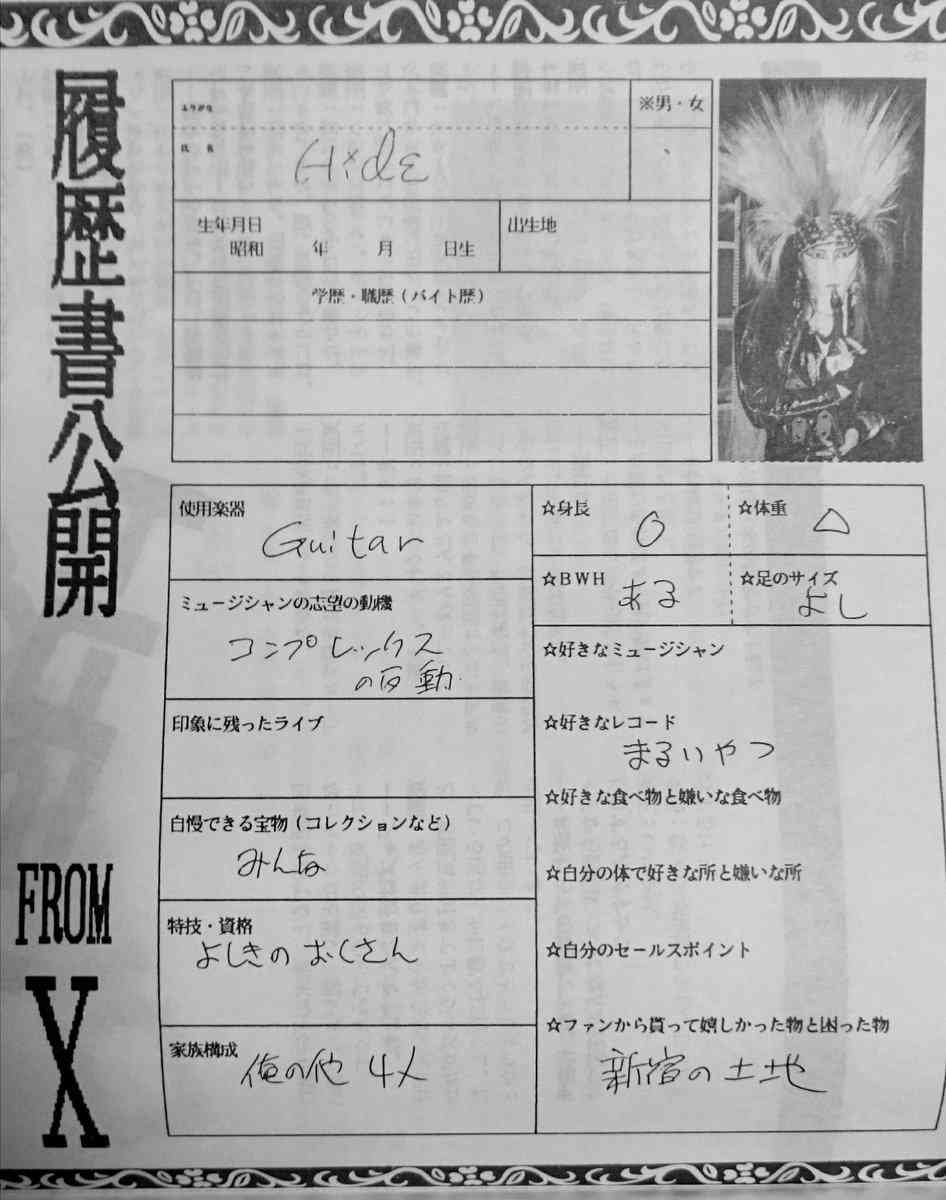 履歴書公開
FROM
X
ふりがな
※男・女
氏名
HidE
生年月日
昭和 年 月 日生
出生地
学歴・職歴(バイト歴)
使用楽器
Guitar
ミュージシャンの志望の動機
コンプレックス
の反動
印象に残ったライブ
自慢できる宝物(コレクションなど)
みんな
特技・資格
よしきの おくさん
家族構成
俺の他 4人
☆身長
○
☆体重
△
☆BWH
ある
☆足のサイズ
よし
☆好きなミュージシャン
☆好きなレコード
まるいやつ
☆好きな食べ物と嫌いな食べ物
☆自分の体で好きな所と嫌いな所
☆自分のセールスポイント
☆ファンから貰って嬉しかった物と困った物
新宿の土地